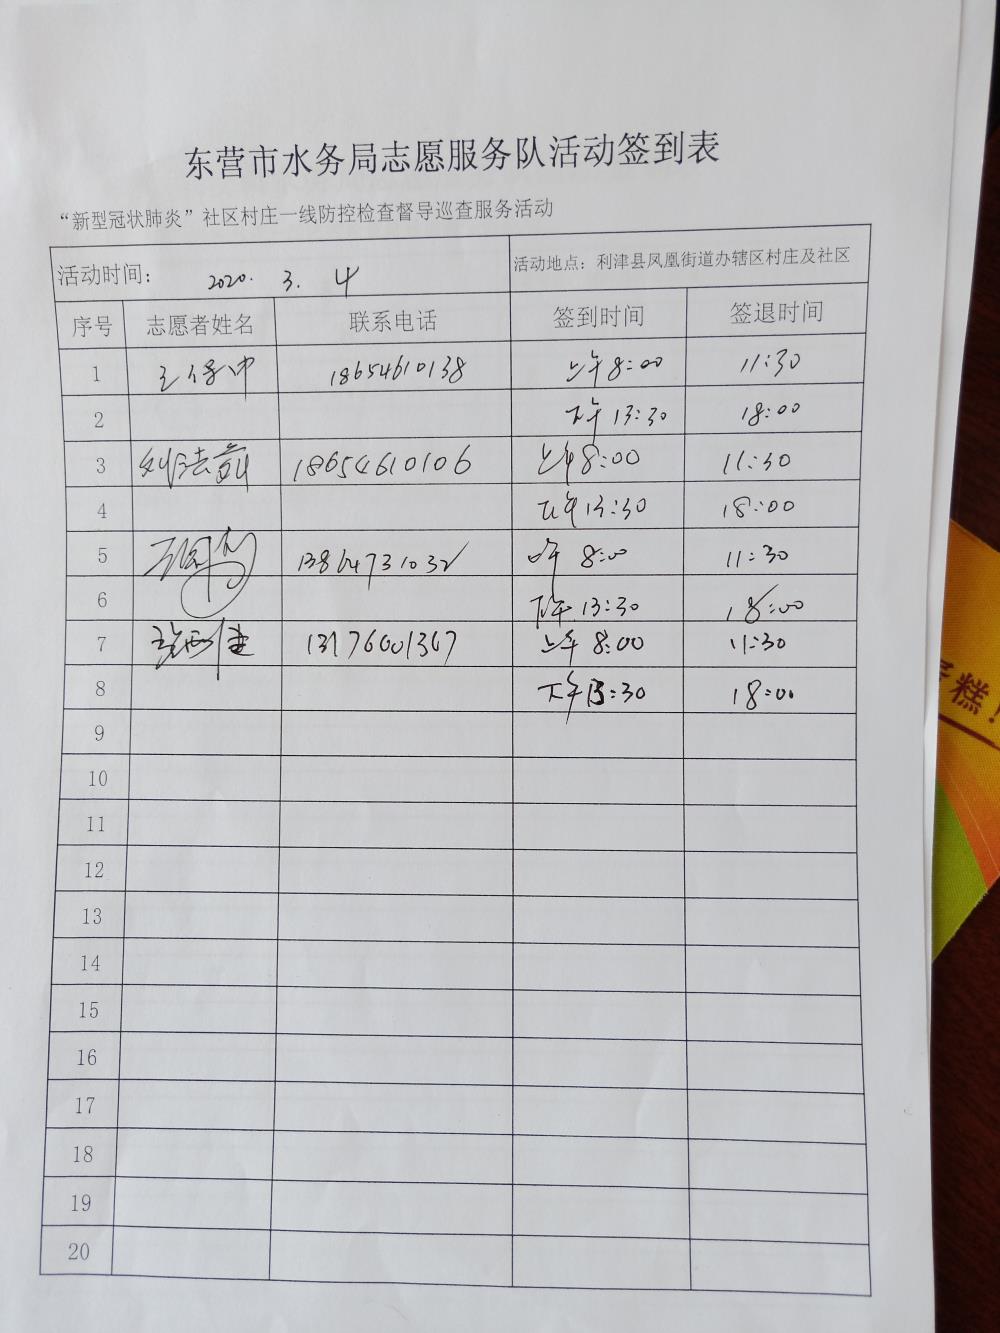 东营市水务局志愿服务队活动签到表
“新型冠状肺炎”社区村庄一线防控检查督导巡查服务活动
活动时间： 2020. 3. 4 活动地点：利津县凤凰街道办辖区村庄及社区
序号 志愿者姓名 联系电话 签到时间 签退时间
1 王保中 18654610138 上午8:00 11:30
2 下午13:30 18:00
3 18654610106 上午8:00 11:30
4 下午13:30 18:00
5 13864731032 上午 8:00 11:30
6 下午 13:30 18:00
7 13176601367 上午 8:00 11:30
8 下午13:30 18:00
9
10
11
12
13
14
15
16
17
18
19
20
糕！